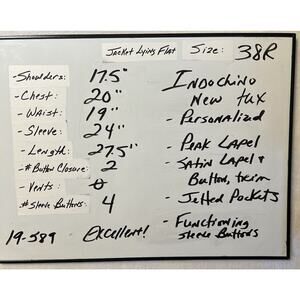 Jacket Lying Flat Size: 38R
- Shoulders: 17.5"
- Chest: 20"
- Waist: 19"
- Sleeve: 24"
- Length: 27.5"
- # Button Closure: 2
- Vents: 0
# Sleeve Buttons: 4
19-589 Excellent!
Indochino
New tux
- Personalized
- Peak Lapel
- Satin Lapel &
Button, trim
- Jetted Pockets
- Functioning
Sleeve Buttons